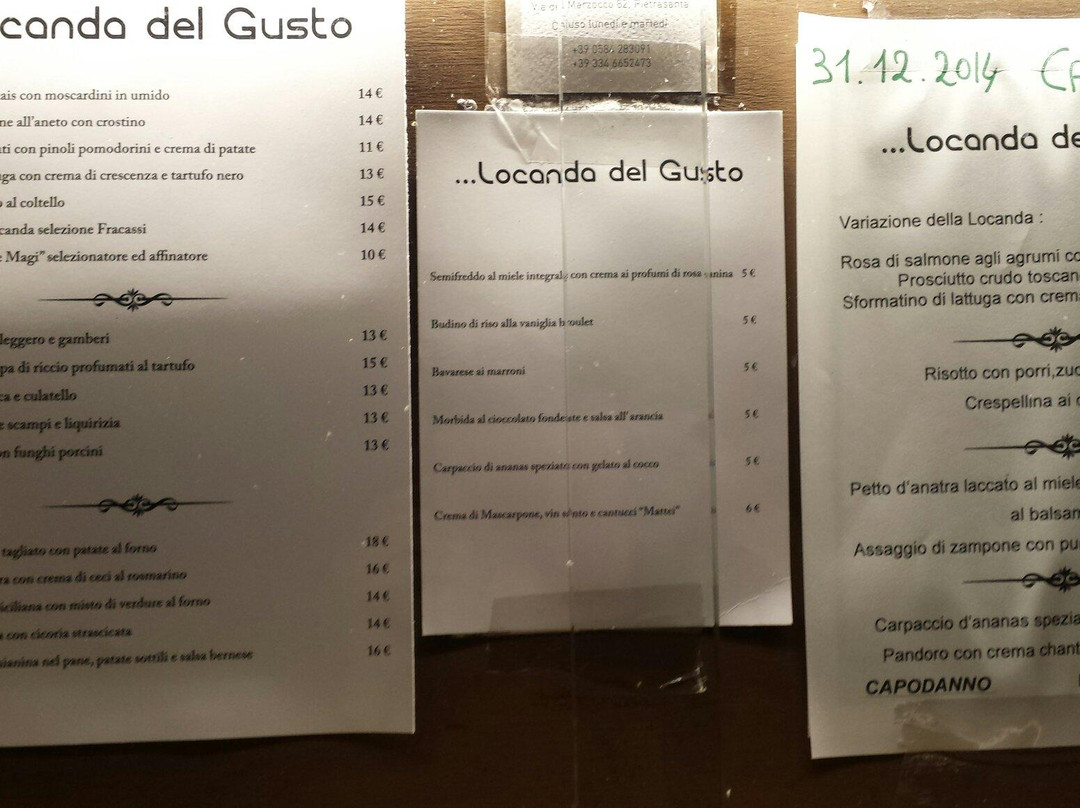 canda del Gusto
ais con moscardini in umido 14 €
ne all'aneto con crostino 14 €
ti con pinoli pomodorini e crema di patate 11 €
ga con crema di crescenza e tartufo nero 13 €
o al coltello 15 €
canda selezione Fracassi 14 €
e Magi" selezionatore ed affinatore 10 €
leggero e gamberi 13 €
pa di riccio profumati al tartufo 15 €
ca e culatello 13 €
e scampi e liquirizia 13 €
on funghi porcini 13 €
tagliato con patate al forno 18 €
ra con crema di ceci al rosmarino 16 €
iciliana con misto di verdure al forno 14 €
a con cicoria strascicata 14 €
ianina nel pane, patate sottili e salsa bernese 16 €
Marzocco 82, Pietrasanta
Chiuso lunedì e martedì
+39 0584 283091
+39 334 6652473
...Locanda del Gusto
Semifreddo al miele integrale con crema ai profumi di rosa canina 5 €
Budino di riso alla vaniglia bourbon 5 €
Bavarese ai marroni 5 €
Morbida al cioccolato fondente e salsa all'arancia 5 €
Carpaccio di ananas speziato con gelato al cocco 5 €
Crema di Mascarpone, vin santo e cantucci "Mattei" 6 €
31.12.2014 CA
...Locanda de
Variazione della Locanda :
Rosa di salmone agli agrumi co
Prosciutto crudo toscan
Sformatino di lattuga con crem
Risotto con porri,zuc
Crespellina ai c
Petto d'anatra laccato al miele
al balsam
Assaggio di zampone con pu
Carpaccio d'ananas spezia
Pandoro con crema chant
CAPODANNO